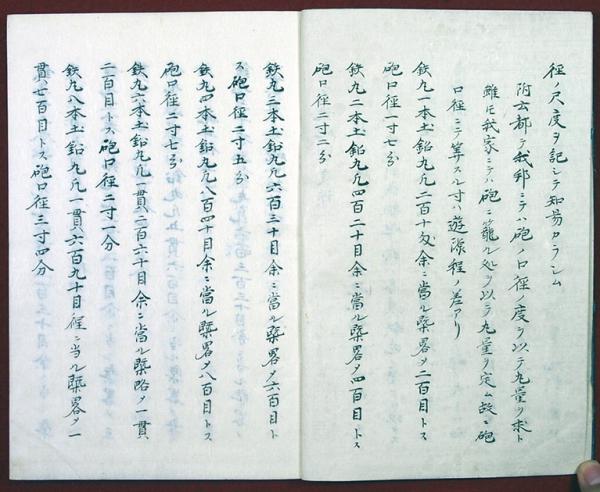 径ノ尺度ヲ記シテ知易カラシム
附云都テ我邦ニテハ砲ノ口径ノ度ヲ以テ丸量ヲ求ト
雖モ我家ニテハ砲ニ籠ル処ヲ以テ丸量ヲ定ム故ニ砲
口径ニテ算スル寸ハ遊隙程ノ差アリ
鉄丸一本土鉛丸斤二百十匁余ニ當ル槩畧メ二百目トス
砲口径一寸七分
鉄丸二本土鉛丸斤四百二十目余ニ當ル槩畧メ四百目トス
砲口径二寸二分
鉄丸三本土鉛丸斤六百三十目余ニ當ル槩畧メ六百目ト
ス砲口径二寸五分
鉄丸四本土鉛丸斤八百四十目余ニ當ル槩畧メ八百目トス
砲口径二寸七分
鉄丸六本土鉛丸斤一貫二百六十目余ニ當ル槩略メ一貫
二百目トス砲口径三寸一分
鉄丸八本土鉛丸斤一貫六百九十目程ニ当ル槩畧メ一
貫六百目トス砲口径三寸四分